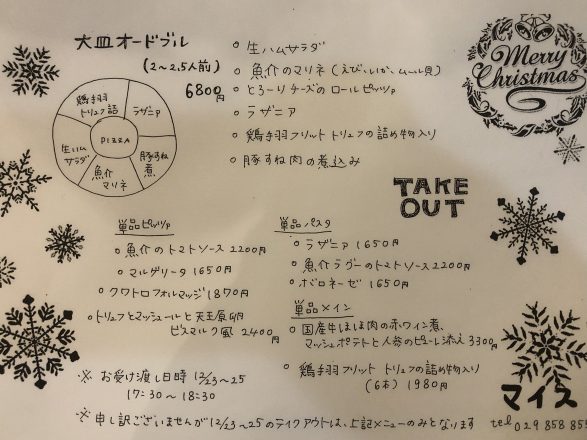 大皿オードブル
(2〜2.5人前)
6800円
鶏手羽
トリュフ詰
ラザニア
生ハム
サラダ
PIZZA
豚すね
煮
魚介
マリネ
○ 生ハムサラダ
○ 魚介のマリネ (えび、いか、ムール貝)
○ とろーりチーズのロールピッツァ
○ ラザニア
○ 鶏手羽フリット トリュフの詰め物入り
○ 豚すね肉の煮込み
Merry
Christmas
TAKE
OUT
単品ピッツァ
○ 魚介のトマトソース 2200円
○ マルゲリータ 1650円
○ クワトロフォルマッジ 1870円
○ トリュフとマッシュルームと天王原卵
ビスマルク風 2400円
単品パスタ
○ ラザニア 1650円
○ 魚介ラグーのトマトソース 2200円
○ ボロネーゼ 1650円
単品メイン
○ 国産牛ほほ肉の赤ワイン煮、
マッシュポテトと人参のピューレ添え 3300円
○ 鶏手羽フリット トリュフの詰め物入り
(6本) 1980円
※ お受け渡し日時 12/23〜25
17:30 〜 18:30
マイス
※ 申し訳ございませんが12/23〜25のテイクアウトは、上記メニューのみとなります
tel 029 858 85